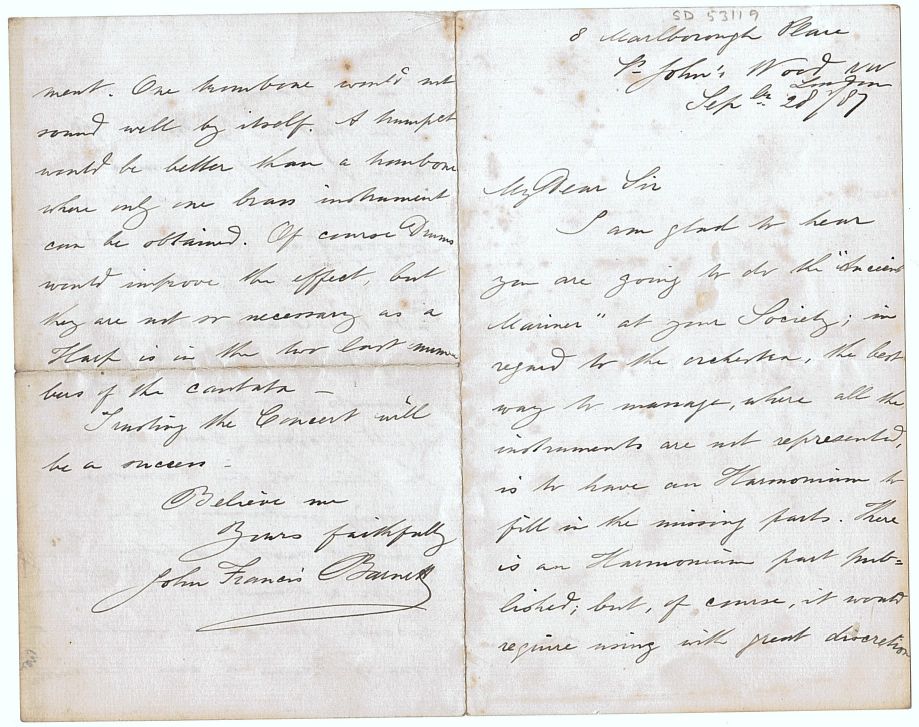 SD 53119
8 Marlborough Place
St John's Wood NW
London
Sepbr 28/87
My Dear Sir
I am glad to hear
you are going to do the "Ancient
Mariner" at your Society; in
regard to the orchestra, the best
way to manage, where all the
instruments are not represented,
is to have an Harmonium to
fill in the missing parts. There
is an Harmonium part pub=
lished; but, of course, it would
require using with great discretion
ment. One trombone would not
sound well by itself. A trumpet
would be better than a trombone
where only one brass instrument
can be obtained. Of course Drums
would improve the effect, but
they are not so necessary as a
Harp is in the two last num
bers of the cantata –
Trusting the Concert will
be a success –
Believe me
Yours faithfully
John Francis Barnett